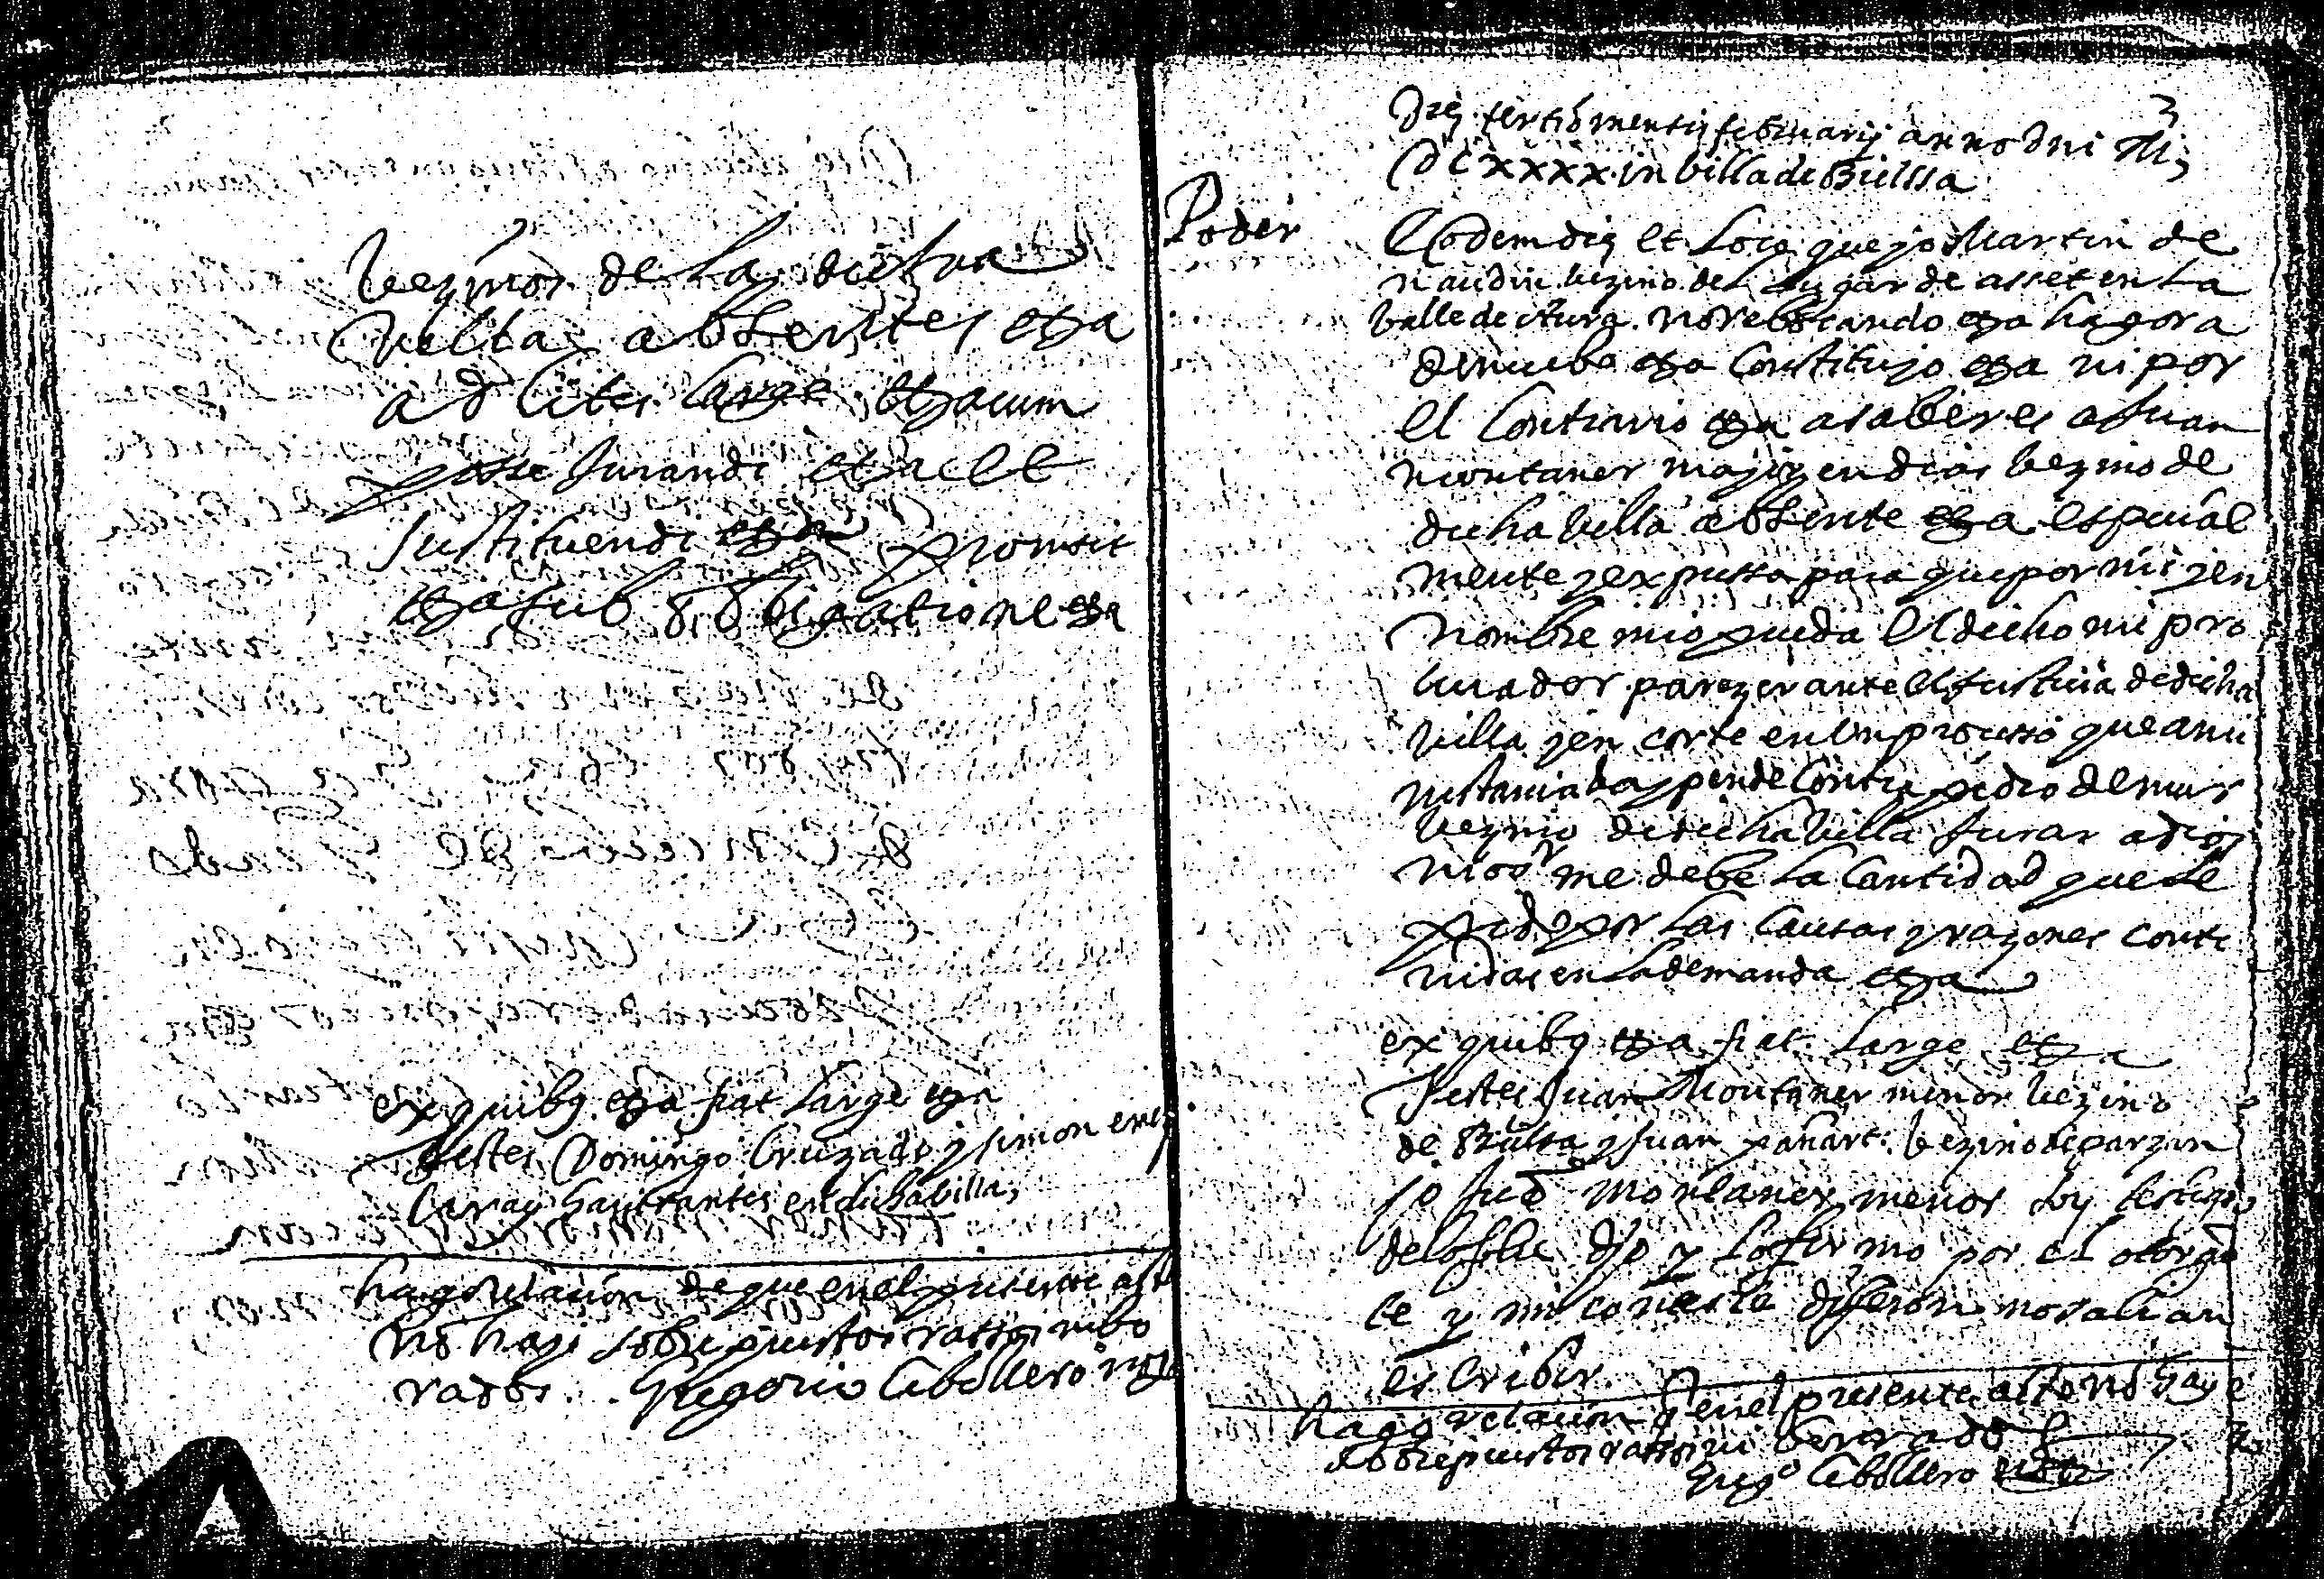 vezinos de la dicha
villa absentes etza
ad lites large etza cum
posse Jurandi etza ett
sustituendi etza promisit
etza sub obligatione etza
ex quibus etza fiat large etza
testes Domingo Cruzado y simon
habitantes en dicha billa,
hago relacion de que en el presente acto
no hay sobrepuestos rassos ni bo
rados. Gregorio Cebollero
3
Die tertio mensis febuarij anno dni M
DCXXXX in billa de Bielssa
Poder
Eodem die et Loco que yo Martin de
naudin bezino del Lugar de asset en La
balle de Aura. no rebocando etza hagora
de nuebo etza Constituyo etza ni por
el Contrario etza a saber es a Juan
montaner mayor en dias bezino de
dicha billa absente etza espicial
mente y expressa para que por mi y en
nombre mio pueda el dicho mi pro
curador parezer ante el Justicia de dicha
villa y en corte en un processo que a mi
instancia ba y pende Contra pedro de mur
vezino de dicha billa Jurar a dios
me debe La Cantidad que Le
pide por Las Causas y razones conte
nidas en La demanda etza
ex quibus etza fiat Large etza
Testes Juan Montaner menor bezino
de Bielsa y Juan pañart bezino de parzan
yo Jua montaner menor soy testigo
de lo sobre djo y Lo firmo por el otorgan
te y mi coneste dijeron no sabian
es Cribir.
hago relacion q en el presente acto no hay
sobrepuestos rassos ni borrados
Greg^o Cebollero not